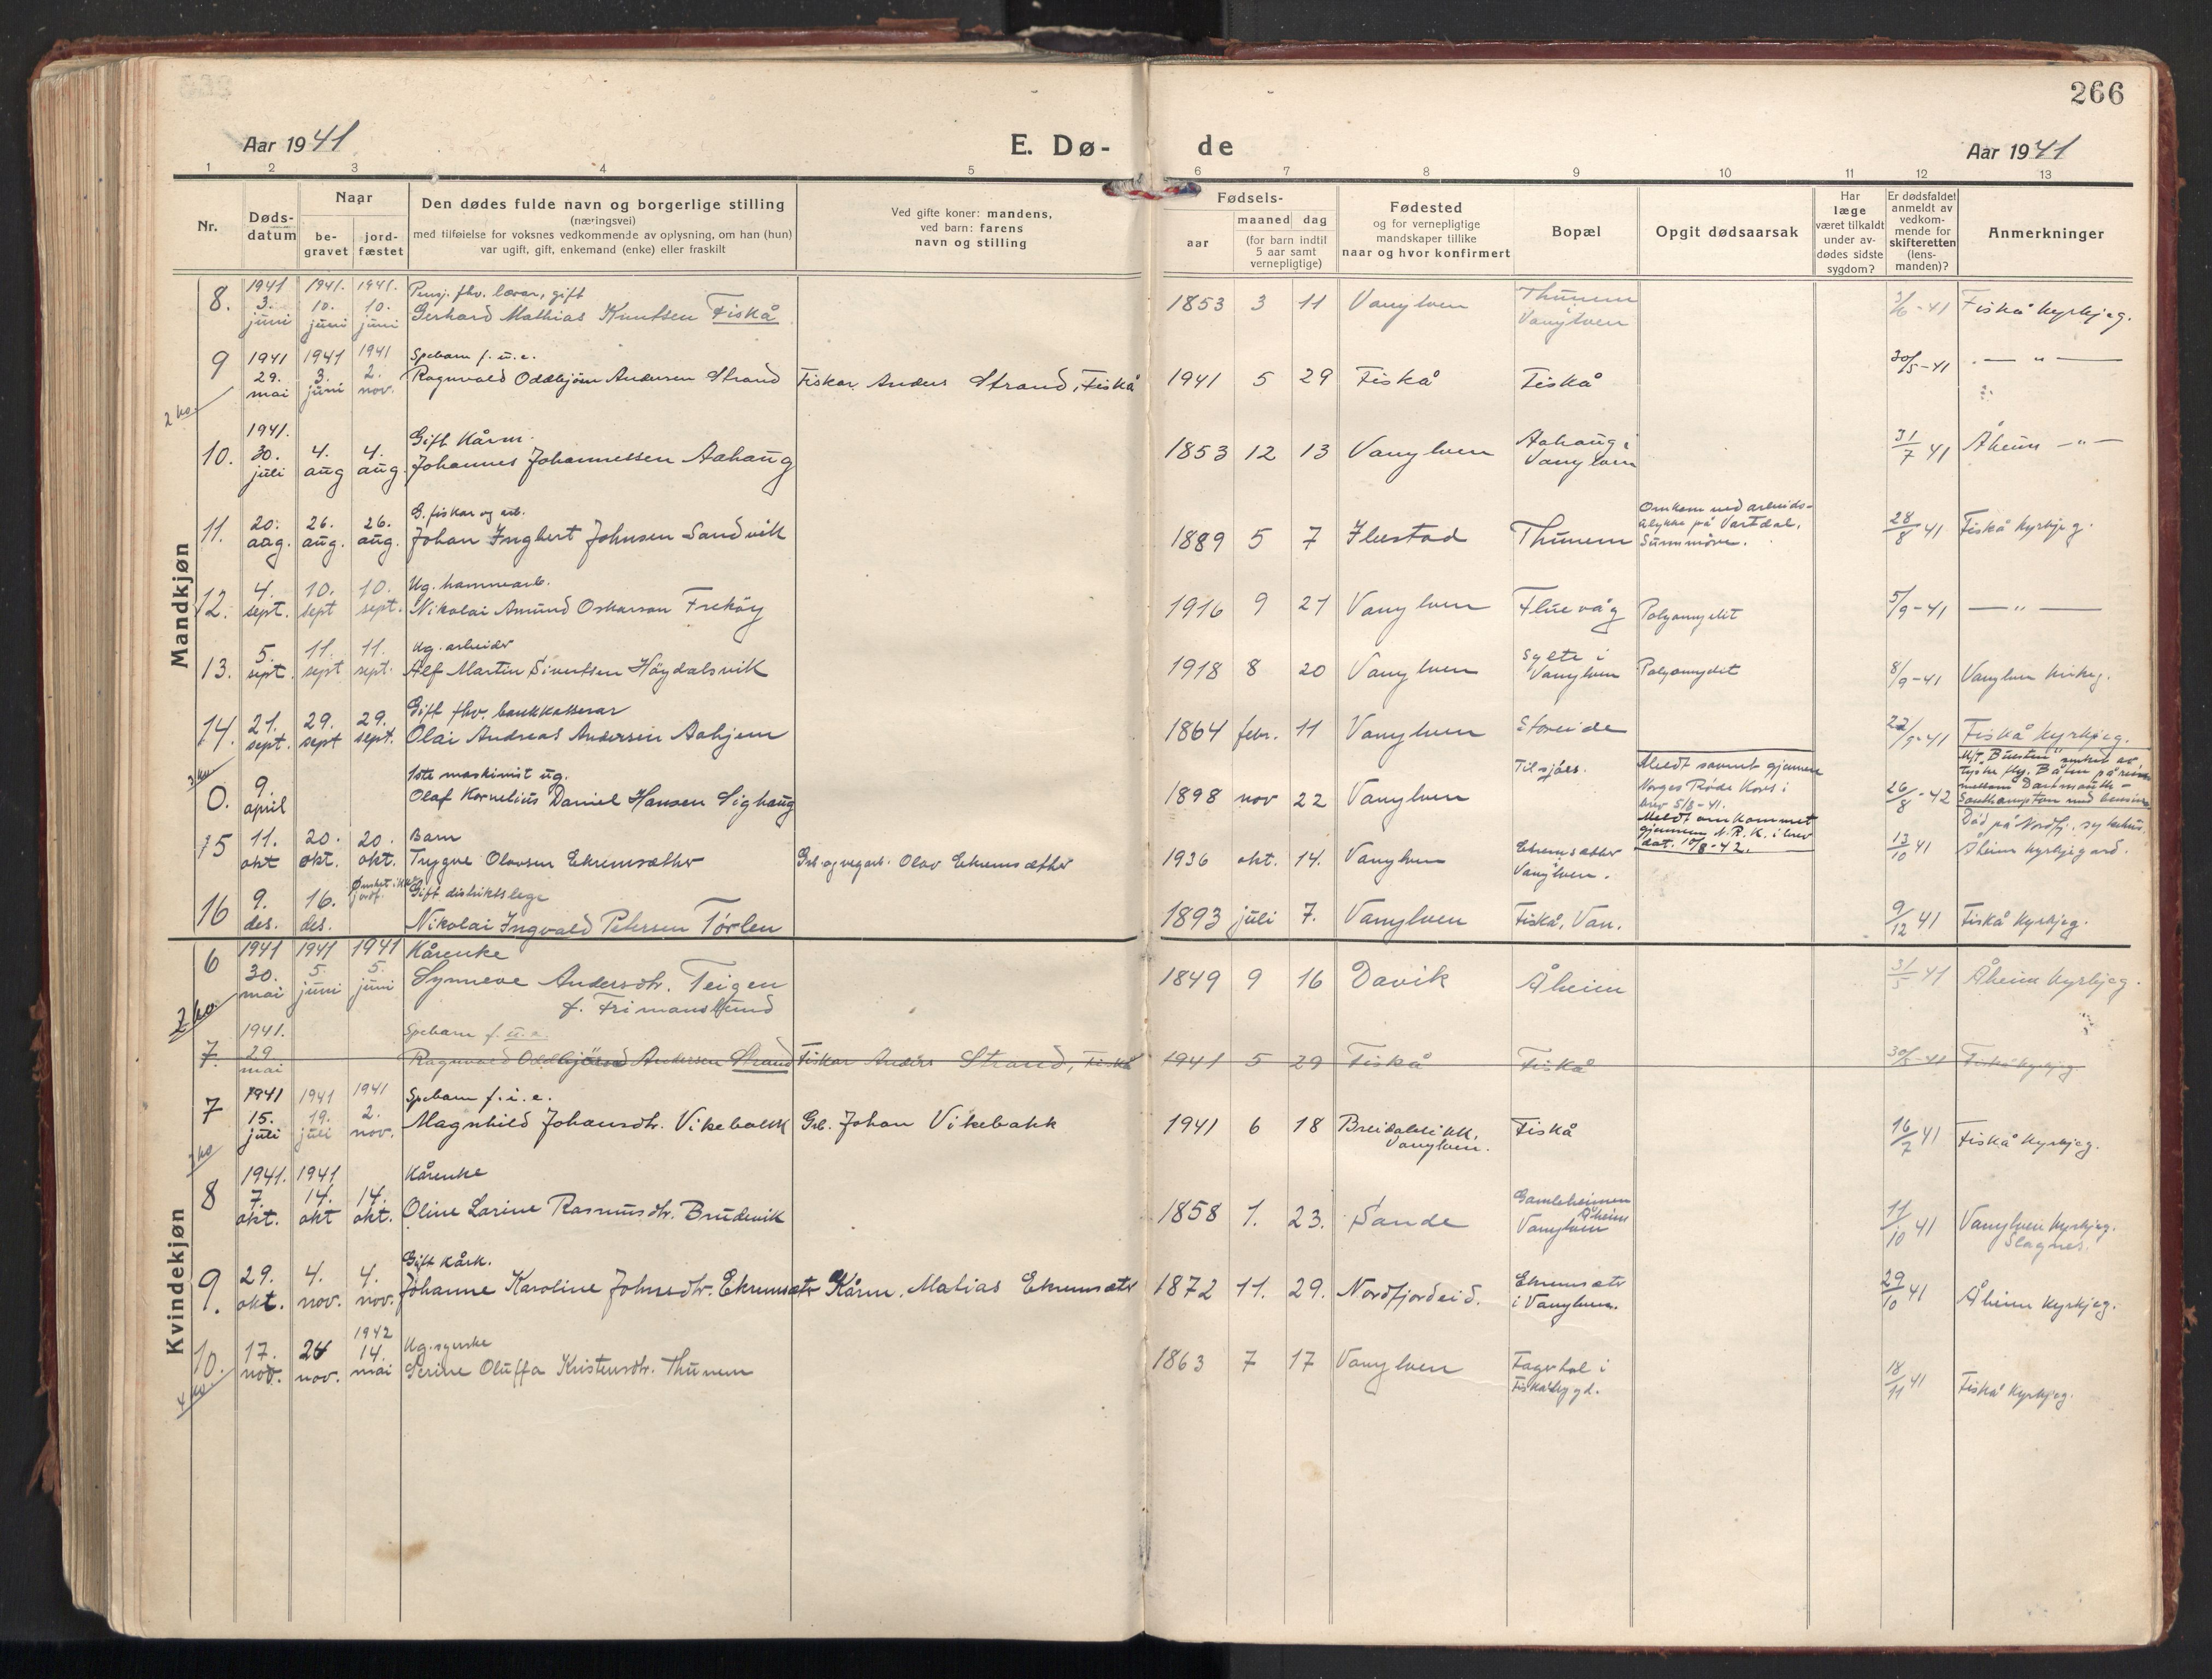 266
Aar 1941
E. Dø-
de
Aar 1941
1 2 3 4 5 6 7 8 9 10 11 12 13
Nr.
Døds-
datum
Naar
be-
gravet
jord-
fæstet
Den dødes fulde navn og borgerlige stilling
(næringsvei)
med tilføielse for voksnes vedkommende av oplysning, om han (hun)
var ugift, gift, enkemand (enke) eller fraskilt
Ved gifte koner: mandens,
ved barn: farens
navn og stilling
Fødsels-
aar
maaned dag
(for barn indtil
5 aar samt
vernepligtige)
Fødested
og for vernepligtige
mandskaper tillike
naar og hvor konfirmert
Bopæl
Opgit dødsaarsak
Har
læge
været tilkaldt
under av-
dødes sidste
sygdom?
Er dødsfaldet
anmeldt av
vedkom-
mende for
skifteretten
(lens-
manden)?
Anmerkninger
Mandkjøn
1941 1941. 1941. Pensj. fhv. lærar, gift
8. 3. juni 10. juni 10. juni Gerhard Mathias Knutsen Fiskå 1853 3 11 Vanylven Thunem Vanylven 3/6-41 Fiskå kyrkjeg.
1941 1941 1941 Spebarn f. u. e.
9 29. mai 3. juni 2. nov. Ragnvald Oddbjørn Andersen Strand Fiskar Anders Strand, Fiskå 1941 5 29 Fiskå Fiskå 30/5-41 — " —
2 ko.
1941. Gift Kårm.
10. 30. juli 4. aug 4. aug. Johannes Johannessen Aahaug 1853 12 13 Vanylven Aahaug i Vanylven 31/7 41 Åheim — " —
G. fiskar og arb.
11. 20. aug. 26. aug. 26. aug. Johan Ingbert Johnsen Sandvik 1889 5 7 Ilestad Thunem Omkom ved arbeids-
ulykke på Vartdal,
Sunnmöre. 28/8 41 Fiskå kyrkjeg.
Ug. hammearb.
12. 4. sept. 10. sept 10. sept. Nikolai Amund Oskarson Frekøy 1916 9 21 Vanylven Fluevåg Polyomyelit 5/9-41 — " —
Ug. arbeider
13. 5. sept. 11. sept 11. sept. Alf Martin Sivertsen Höydalsvik 1918 8 20 Vanylven Sylte i Vanylven Polyomyelit 8/9-41 Vanylven kirkeg.
Gift fhv. bankkasserar
14. 21. sept. 29. sept 29. sept. Olai Andreas Andersen Aahjem 1864 febr. 11 Vanylven Storeide 22/9-41 Fiskå kyrkjeg.
3 ko
1ste maskinist ug.
0. 9. april Olaf Kornelius Daniel Hansen Sighaug 1898 nov 22 Vanylven Til sjöes. Meldt savnet gjennem
Norges Röde Kors i
brev 5/8-41.
Meldt omkommet
gjennem N.R.K. i brev
dat. 10/8-42. 26/8-42 M/T "Buesten" senket av
tyske fly. Båten på reise
mellom Dartmouth -
Southampton med bensin
Barn
15 11. okt 20. okt. 20. okt. Trygve Olavsen Ekremsæther Grb. og vegarb. Olav Ekremsæther 1936 okt. 14. Vanylven Ekremsæther Vanylven. 13/10 41 Död på Nordfj. sykehus.
Åheim kyrkjegard.
Ønsket ikke jordf. Gift distriktslege
16 9. des. 16. des. Nikolai Ingvald Petersen Tørlen 1893 juli 7. Vanylven Fiskå, Van. 9/12 41 Fiskå kyrkjeg.
Kvindekjøn
1941 1941 1941 Kårenke
6 30. mai 5. juni 5. juni Synneve Andersdtr. Teigen
f. Frimanslund 1849 9 16 Davik Åheim 31/5 41 Åheim kyrkjeg.
2 ko.
1941. Spebarn f. u. e.
7. 29 mai Ragnvald Oddbjörnd Andersen Strand Fiskar Anders Strand, Fiskå 1941 5 29 Fiskå Fiskå 30/5-41 Fiskå kyrkjeg
1941 1941 1941 Spebarn f. i. e.
7 15. juli 19. juli 2. nov. Magnhild Johansdtr. Vikebakk Grb. Johan Vikebakk 1941 6 18 Breidableikk, Vanylven. Fiskå 16/7 41 Fiskå kyrkjeg.
3 ko
1941. 1941 Kårenke
8 7. okt. 14. okt 14. okt. Oline Larine Rasmusdtr. Brudevik 1858 1. 23. Sande Gamleheimen Åheim Vanylven 11/10 41 Vanylven kyrkjeg.
Slagnes.
Gift kårk.
9. 29. okt. 4. nov. 4. nov. Johanne Karoline Johnsdtr. Ekremsætr Kårm. Matias Ekremsætr 1872 11. 29. Nordfjordeid. Ekremsætr i Vanylven. 29/10 41 Åheim kyrkjeg.
1942 Ug. syerske
10. 17. nov. 24 nov. 14. mai Serine Oluffa Kristensdtr. Thunem 1863 7 17 Vanylven Fagerhol i Fiskåbygd. 18/11 41 Fiskå kyrkjeg.
4 ko.